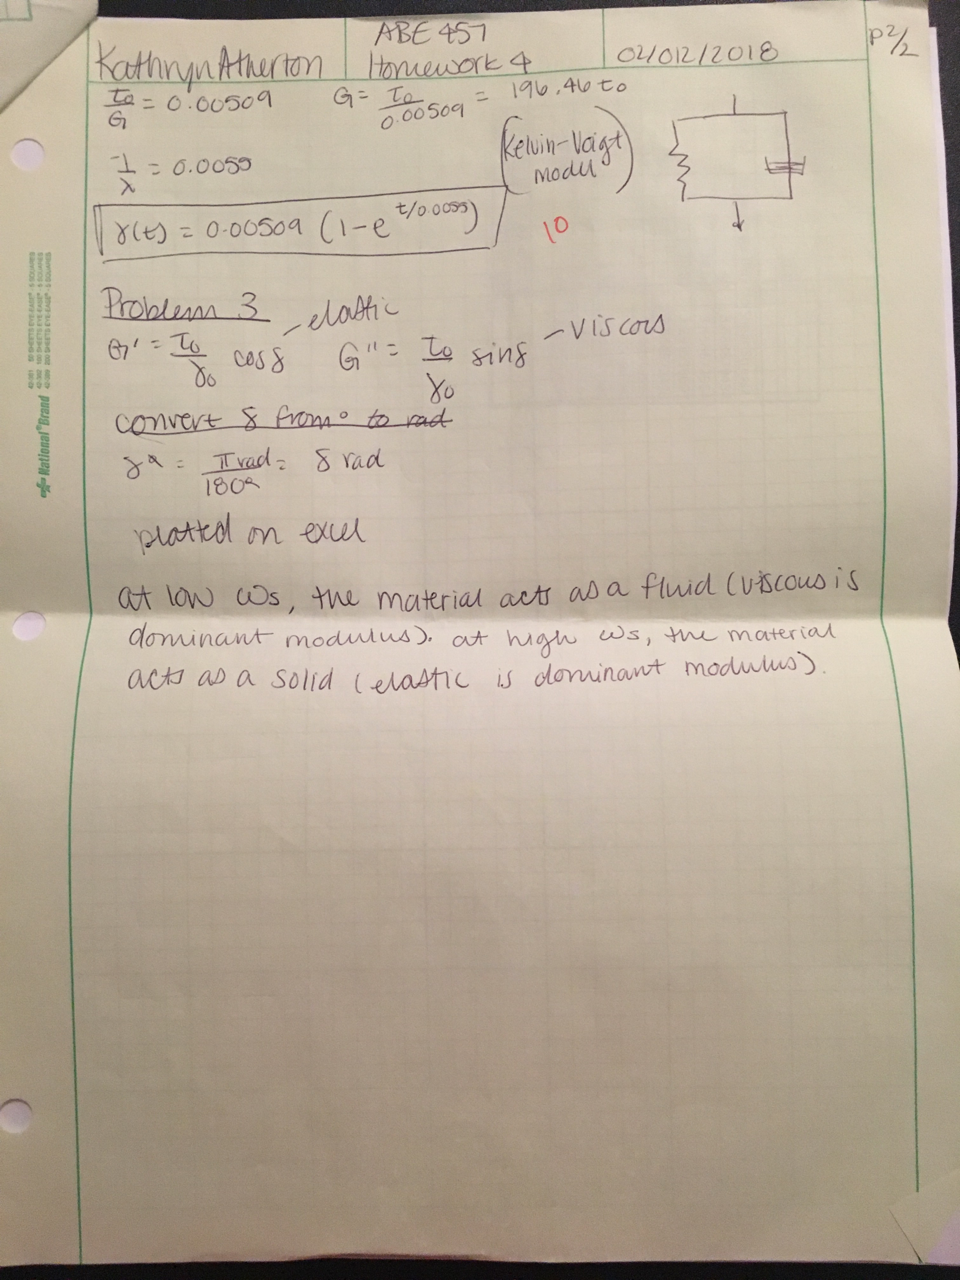 ABE 457
Kathryn Atherton Homework 4 02/012/2018 P2/2
τ0/G = 0.00509 G = τ0/0.00509 = 196.46 τ0
-1/λ = 0.0055
(Kelvin-Voigt model)
γ(t) = 0.00509 (1-e^t/0.0055)
10
Problem 3
- elastic
G' = τ0/γ0 cos δ G'' = τ0/γ0 sin δ - viscous
convert δ from ° to rad
δ° = π rad/180° = δ rad
plotted on excel
at low ωs, the material acts as a fluid (viscous is
dominant modulus). at high ωs, the material
acts as a solid (elastic is dominant modulus).
National Brand